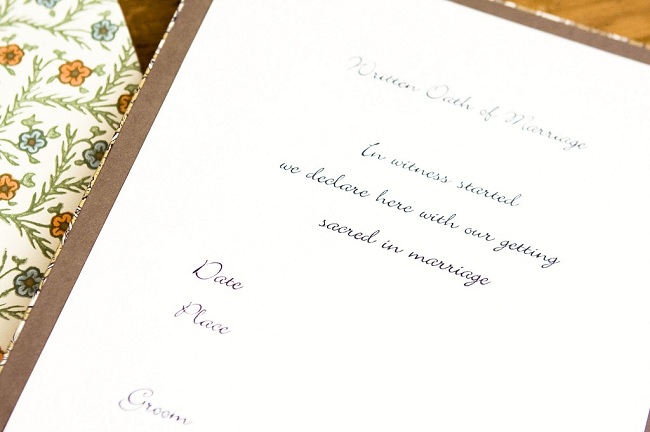 Written Oath of Marriage
In witness started
we declare here with our getting
sacred in marriage
Date
Place
Groom